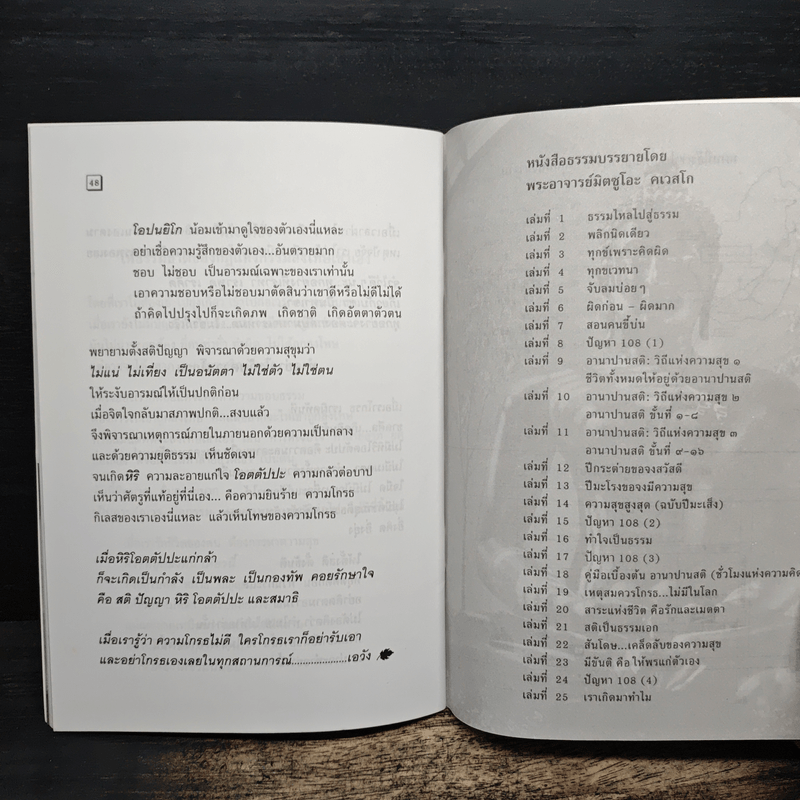 48
โอปนยิโก น้อมเข้ามาดูใจของตัวเองนี่แหละ
อย่าเชื่อความรู้สึกของตัวเอง...อันตรายมาก
ชอบ ไม่ชอบ เป็นอารมณ์เฉพาะของเราเท่านั้น
เอาความชอบหรือไม่ชอบมาตัดสินว่าเขาดีหรือไม่ดีไม่ได้
ถ้าคิดไปปรุงไปก็จะเกิดภพ เกิดชาติ เกิดอัตตาตัวตน
พยายามตั้งสติปัญญา พิจารณาด้วยความสุขุมว่า
ไม่แน่ ไม่เที่ยง เป็นอนัตตา ไม่ใช่ตัว ไม่ใช่ตน
ให้ระงับอารมณ์ให้เป็นปกติก่อน
เมื่อจิตใจกลับมาสภาพปกติ...สงบแล้ว
จึงพิจารณาเหตุการณ์ภายในภายนอกด้วยความเป็นกลาง
และด้วยความยุติธรรม เห็นชัดเจน
จนเกิดหิริ ความละอายแก่ใจ โอตตัปปะ ความกลัวต่อบาป
เห็นว่าศัตรูที่แท้อยู่ที่นี่เอง... คือความยินร้าย ความโกรธ
กิเลสของเราเองนี่แหละ แล้วเห็นโทษของความโกรธ
เมื่อหิริโอตตัปปะแก่กล้า
ก็จะเกิดเป็นกำลัง เป็นพละ เป็นกองทัพ คอยรักษาใจ
คือ สติ ปัญญา หิริ โอตตัปปะ และสมาธิ
เมื่อเรารู้ว่า ความโกรธไม่ดี ใครโกรธเราก็อย่ารับเอา
และอย่าโกรธเองเลยในทุกสถานการณ์....................เอวัง
หนังสือธรรมบรรยายโดย
พระอาจารย์มิตซูโอะ คเวสโก
เล่มที่ 1 ธรรมไหลไปสู่ธรรม
เล่มที่ 2 พลิกนิดเดียว
เล่มที่ 3 ทุกข์เพราะคิดผิด
เล่มที่ 4 ทุกขเวทนา
เล่มที่ 5 จับลมบ่อยๆ
เล่มที่ 6 ผิดก่อน - ผิดมาก
เล่มที่ 7 สอนคนขี้บ่น
เล่มที่ 8 ปัญหา 108 (1)
เล่มที่ 9 อานาปานสติ: วิถีแห่งความสุข ๑
ชีวิตทั้งหมดให้อยู่ด้วยอานาปานสติ
เล่มที่ 10 อานาปานสติ: วิถีแห่งความสุข ๒
อานาปานสติ ขั้นที่ ๑-๘
เล่มที่ 11 อานาปานสติ: วิถีแห่งความสุข ๓
อานาปานสติ ขั้นที่ ๙-๑๖
เล่มที่ 12 ปีกระต่ายของจงสวัสดี
เล่มที่ 13 ปีมะโรงขอจงมีความสุข
เล่มที่ 14 ความสุขสูงสุด (ฉบับปีมะเส็ง)
เล่มที่ 15 ปัญหา 108 (2)
เล่มที่ 16 ทำใจเป็นธรรม
เล่มที่ 17 ปัญหา 108 (3)
เล่มที่ 18 คู่มือเบื้องต้น อานาปานสติ (ชั่วโมงแห่งความคิด
เล่มที่ 19 เหตุสมควรโกรธ...ไม่มีในโลก
เล่มที่ 20 สาระแห่งชีวิต คือรักและเมตตา
เล่มที่ 21 สติเป็นธรรมเอก
เล่มที่ 22 สันโดษ...เคล็ดลับของความสุข
เล่มที่ 23 มีขันติ คือ ให้พรแก่ตัวเอง
เล่มที่ 24 ปัญหา 108 (4)
เล่มที่ 25 เราเกิดมาทำไม